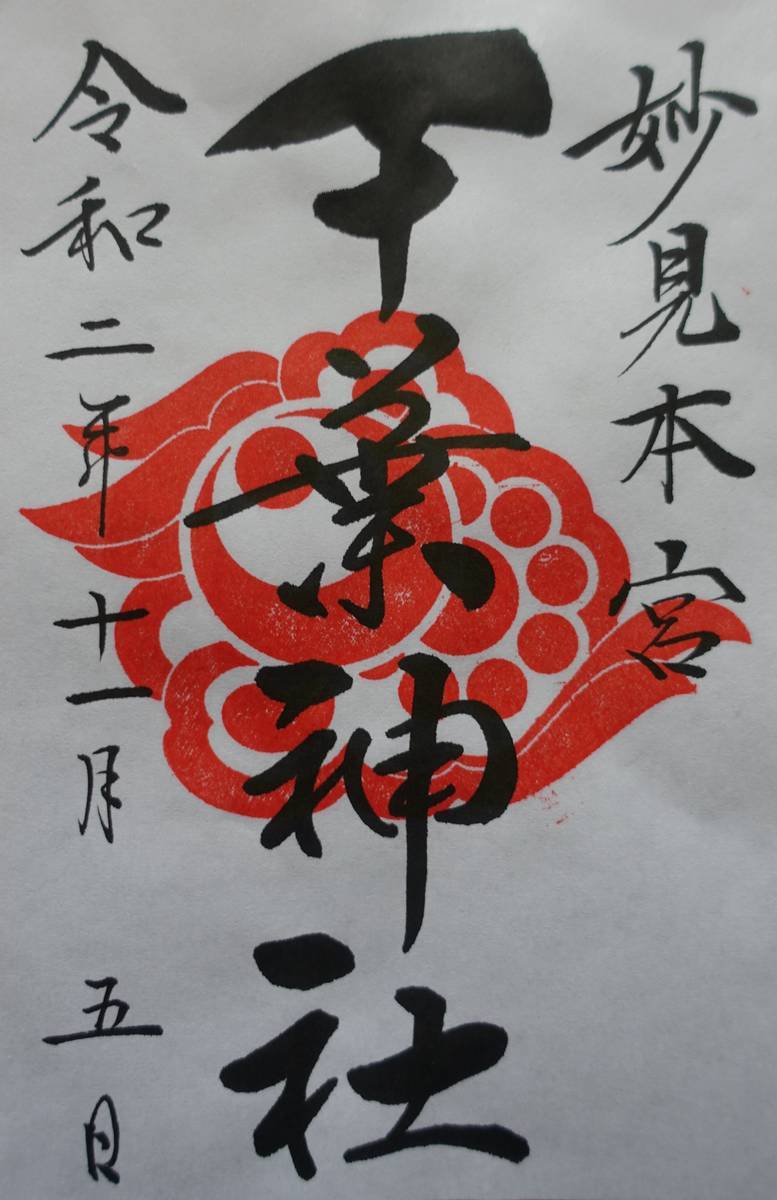 妙見本宮
千葉神社
令和二年十一月五日